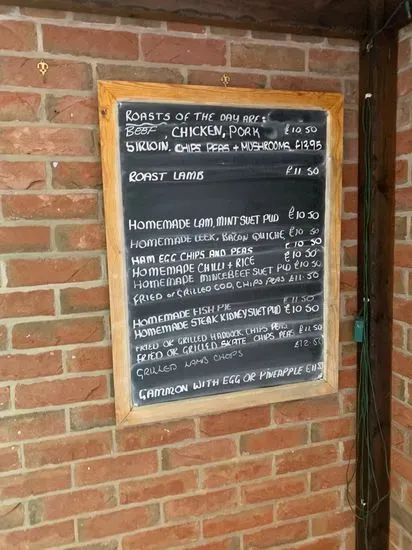 ROASTS OF THE DAY ARE:
BEEF, CHICKEN, PORK £10.50
SIRLOIN. CHIPS PEAS + MUSHROOMS £13.95
ROAST LAMB £11.50
HOMEMADE LAM, MINT SUET PUD £10.50
HOMEMADE LEEK, BACON QUICHE £10.50
HAM EGG CHIPS AND PEAS £10.50
HOMEMADE CHILLI + RICE £10.50
HOMEMADE MINCEBEEF SUET PUD £10.50
FRIED OR GRILLED COD, CHIPS PEAS £11.50
HOMEMADE FISH PIE £11.50
HOMEMADE STEAK KIDNEY SUET PUD £10.50
FRIED OR GRILLED HADDOCK, CHIPS PEAS £11.50
FRIED OR GRILLED SKATE CHIPS PEAS £12.50
GRILLED LAMB CHOPS
GAMMON WITH EGG OR PINEAPPLE